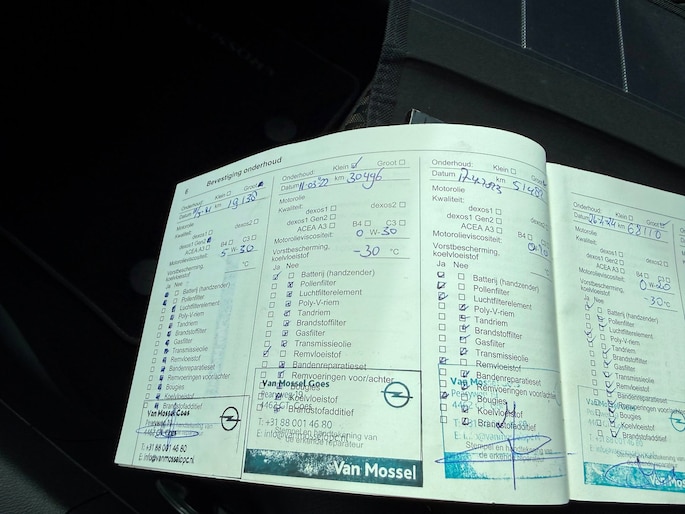 8
Bevestiging onderhoud
Onderhoud: Klein Groot
Datum km 19.138
Motorolie
Kwaliteit:
dexos1 dexos2
dexos1 Gen2
ACEA A3 B4 C3
Motorolieviscositeit: 5 W-30
Vorstbescherming,
koelvloeistof °C
Ja Nee
Batterij (handzender)
Pollenfilter
Luchtfilterelement
Poly-V-riem
Tandriem
Brandstoffilter
Gasfilter
Transmissieolie
Remvloeistof
Bandenreparatieset
Remvoeringen voor/achter
Bougies
Koelvloeistof
Brandstofadditief
Van Mossel Goes
T: +31 88 001 46 80
E: info@vanmosselppc.nl
Onderhoud: Klein Groot
Datum 11-05-22 km 30496
Motorolie
Kwaliteit:
dexos1 dexos2
dexos1 Gen2
ACEA A3 B4 C3
Motorolieviscositeit: 0 W-30
Vorstbescherming,
koelvloeistof -30 °C
Ja Nee
Batterij (handzender)
Pollenfilter
Luchtfilterelement
Poly-V-riem
Tandriem
Brandstoffilter
Gasfilter
Transmissieolie
Remvloeistof
Bandenreparatieset
Remvoeringen voor/achter
Bougies
Koelvloeistof
Brandstofadditief
Van Mossel Goes
T: +31 88 001 46 80
E: info@vanmosselppc.nl
Stempel en handtekening van
de erkende reparateur
Van Mossel
Onderhoud: Klein Groot
Datum km
Motorolie
Kwaliteit:
dexos1 dexos2
dexos1 Gen2
ACEA A3 B4 C3
Motorolieviscositeit:
Vorstbescherming,
koelvloeistof
Ja Nee
Batterij (handzender)
Pollenfilter
Luchtfilterelement
Poly-V-riem
Tandriem
Brandstoffilter
Gasfilter
Transmissieolie
Remvloeistof
Bandenreparatieset
Remvoeringen voor/achter
Bougies
Koelvloeistof
Brandstofadditief
Onderhoud: Klein Groot
Datum 26-7-24 km 68110
Motorolie
Kwaliteit:
dexos1
dexos1 Gen2
ACEA A3 B4
Motorolieviscositeit: 0 W-20
Vorstbescherming,
koelvloeistof -30 °C
Ja Nee
Batterij (handzender)
Pollenfilter
Luchtfilterelement
Poly-V-riem
Tandriem
Brandstoffilter
Gasfilter
Transmissieolie
Remvloeistof
Bandenreparatieset
Remvoeringen voor/achter
Bougies
Koelvloeistof
Brandstofadditief